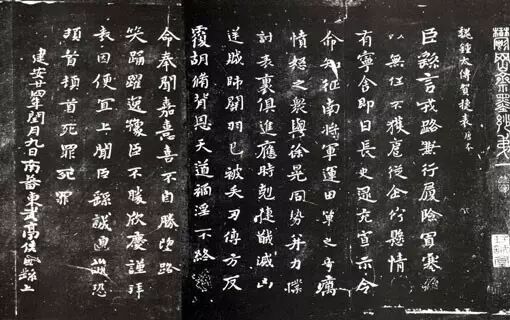 鬱岡齋墨妙
魏鍾太傅賀捷表 唐本
臣繇言戎路兼行履險冒寒臣
以無任不獲扈從企佇懸情無
有寧舍即日長史逮充宣示令
命知征南將軍運田單之奇厲
憤怒之衆與徐晃同勢并力撲
討表裏俱進應時剋捷馘滅凶
逆賊帥關羽已被矢刃傅方反
覆胡脩背恩天道禍淫不終厥
命奉聞嘉憙喜不自勝望路載
笑踊躍逸豫臣不勝欣慶謹拜
表因便宜上聞臣繇誠惶誠恐
頓首頓首死罪死罪
建安廿四年閏月九日南蕃東武亭侯臣繇上